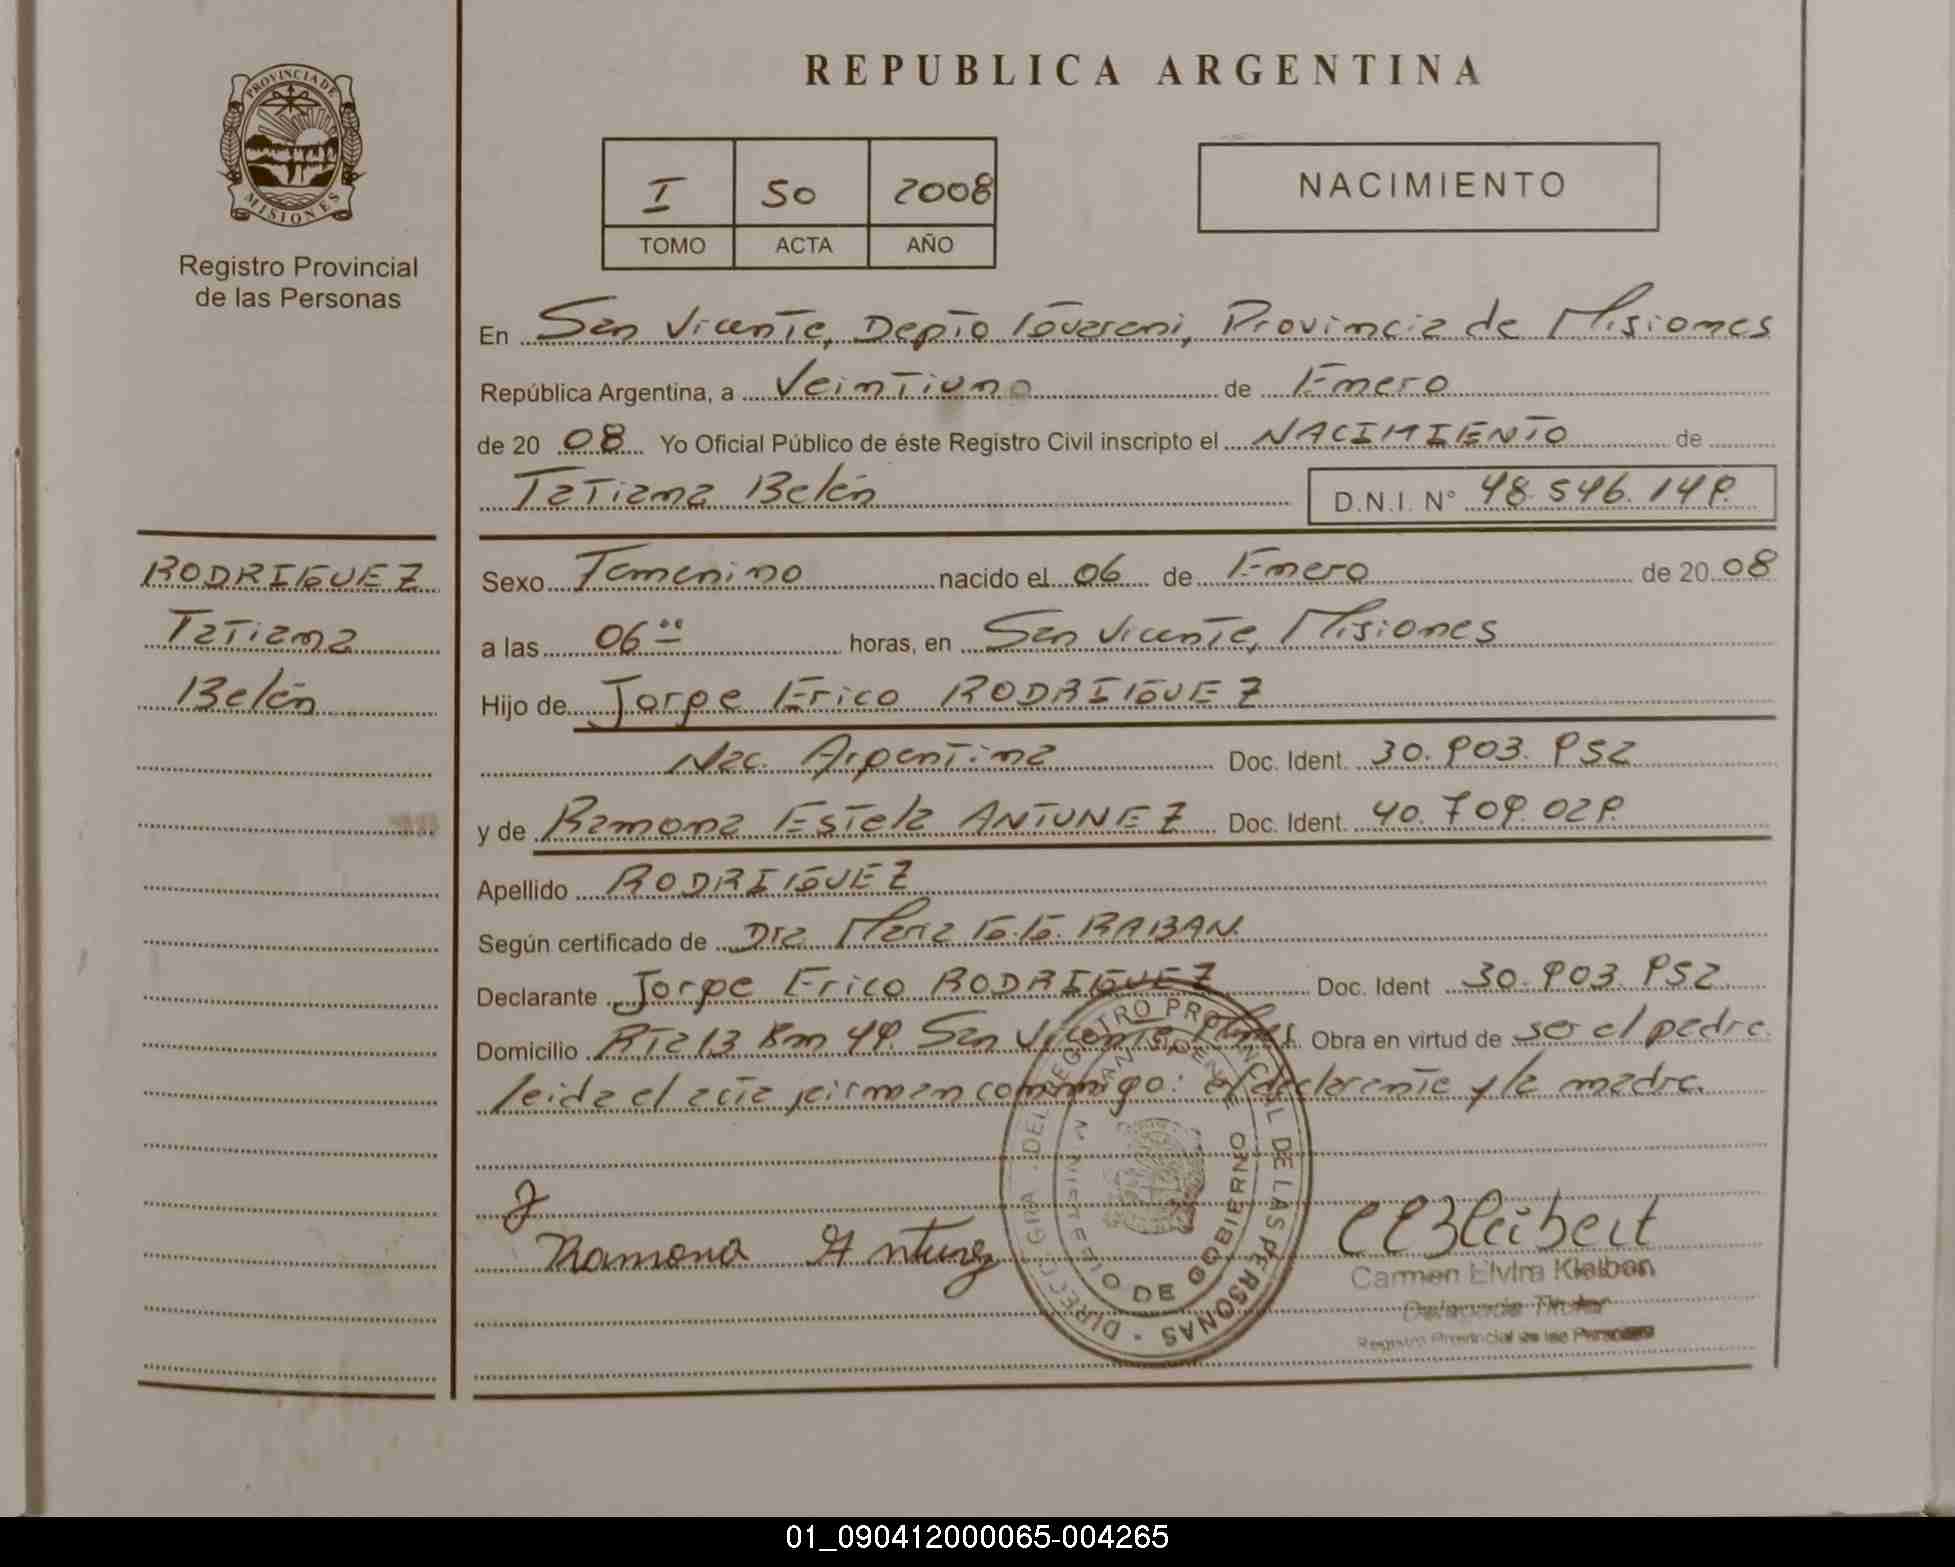 PROVINCIA DE
MISIONES
Registro Provincial
de las Personas
REPUBLICA ARGENTINA
I 50 2008
TOMO ACTA AÑO
NACIMIENTO
En San Vicente, Depto Guarani, Provincia de Misiones
República Argentina, a Veintiuno de Enero
de 20 08 Yo Oficial Público de éste Registro Civil inscripto el NACIMIENTO de
Tatiana Belén D.N.I. N° 48.546.149.
RODRIGUEZ
Tatiana
Belén
Sexo Femenino nacido el 06 de Enero de 20 08
a las 06 horas, en San Vicente, Misiones
Hijo de Jorge Erico RODRIGUEZ
Nac. Argentina Doc. Ident. 30.903.952
y de Ramona Estela ANTUNEZ Doc. Ident. 40.709.029.
Apellido RODRIGUEZ
Según certificado de Dra Maria G.G. RABAN.
Declarante Jorge Erico RODRIGUEZ Doc. Ident 30.903.952
Domicilio Rta 13 Km 49. San Vicente Obra en virtud de ser el padre.
leida el acta firman conmigo: el declarante y la madre.
DIRECC. GRAL. DEL REGISTRO PROVINCIAL DE LAS PERSONAS
MINISTERIO DE GOBIERNO
Ramona Antunez
Carmen Elvira
Registro Provincial de las Personas
01_090412000065-004265